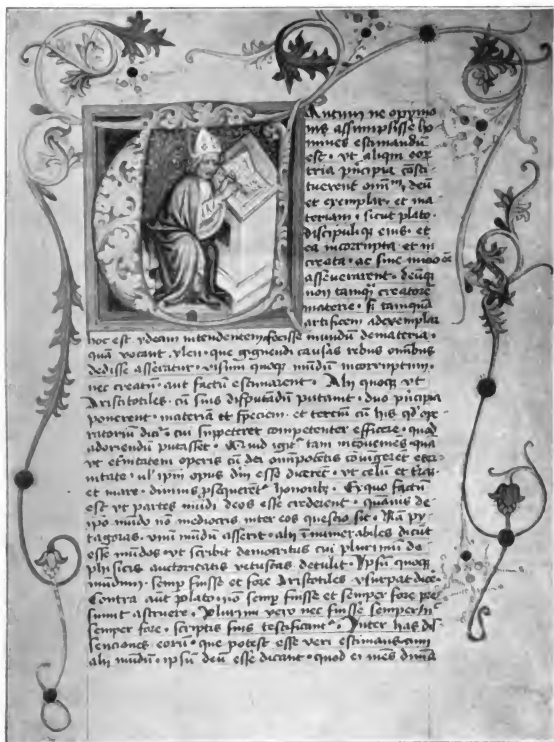 TAntum ne opinio
nis assumpsisse ho
mines estimandū
est · vt aliqui eoꝝ
tria principia cōsti
tuerent omīm, deū
et exemplar · et ma
teriam · sicut plato ·
discipuliqꝫ eius · et
ea incorrupta · et in
creata · ac sine inicio eē
asseuerarent · deūqꝫ
non tamqͣ creatorē
materie · sꝫ tamquā
artificem ad exemplar
hoc est ydeam intendentem fecisse mundū de materia ·
quā vocant ylen · que gignendi causas rebus omībus
dedisse asseratur · ipsum quoqꝫ mūdū incorruptum ·
nec creatū aut factū estimarent · Alij quoqꝫ vt
Aristotiles · cū suis disputādū putauit · duo pͥncipia
ponerent · materiā et speciem · et tercium cū his qd̓ ope
ratoriū dicit̄ · cui suppeteret competenter efficere · quod
adoriendū putasset · Quid igit̄ tam incōueniens quā
vt et̓nitatem operis cū dei omīpotētis cōiūgeret eter
nitate · ul̓ ipm̄ opus dm̄ esse diceret · vt celū et t̓rā
et mare · diuinis ꝓsequeret̄ honoribꝫ · Ex quo factū
est vt partes mūdi deos esse crederent · quāuis de
ipo mūdo nō mediocris inter eos questio sit · Nā py
tagoras · vnū mūdū asserit · alij īnumerabiles dicūt
esse mūdos · vt scribit democritus cui plurimū de
phisicis auctoritatis vetustas detulit · Ipsū quoqꝫ
mundum · semp̄ fuisse et fore Aristotiles vsurpat dice͛ ·
Contra aut̄ plato · nō semp̄ fuisse et semper fore pre
sumit astruere · Plurimi vero nec fuisse semper · n̄
semper fore · scriptis suis testificant̄ · Inter has dis
senciones eorū · que potest esse veri estimatio · cum
alij mūdū · ipsū deū esse dicant · quod ei mēs diuīa